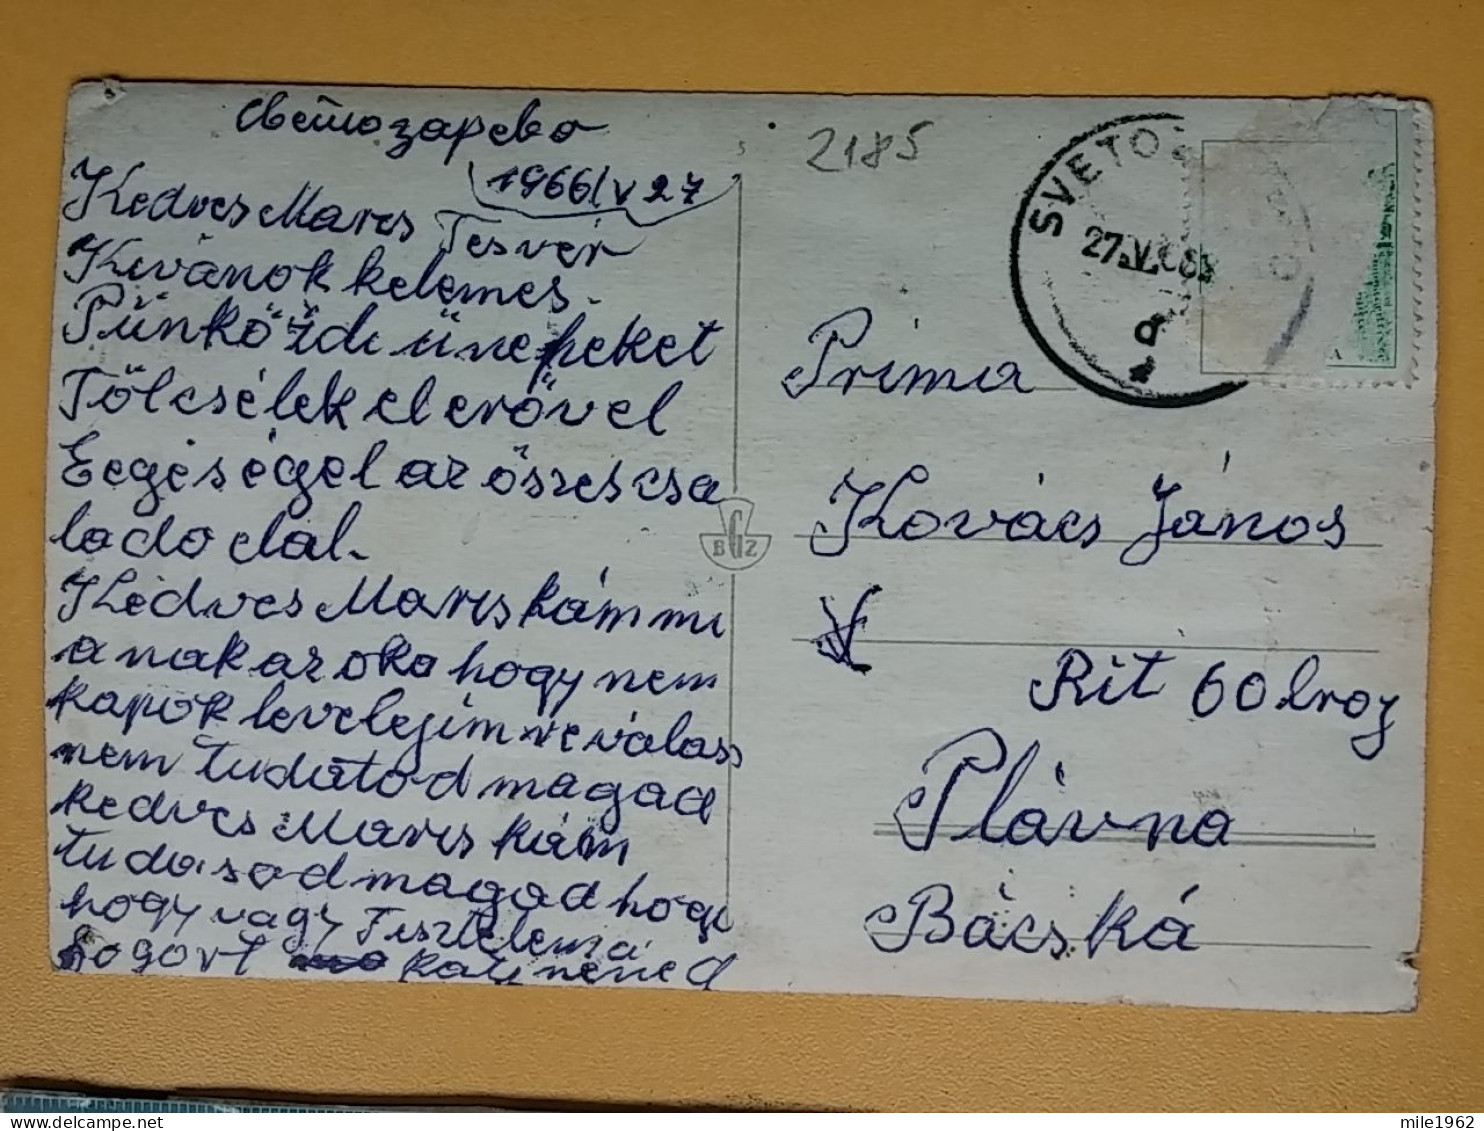 Светозарево
1966/V 27
Kedves Mares Tesvér
Kivánok kelemes
Pünkӧżdi ünepeket
Tölcsélek el erővel
Eegéségel az összes csa
ladodal.
Kedves Mares kám mi
anak az oka hogy nem
kapok levelejimre válass
nem tudátod magad
kedves Mares kám
tudasod magad hogi
hogy vagy Tisztelem a
sogort kati nened
2185
SVETOZ
27.V.66
a
Prima
Kovács János
Rit 60 broj
Plávna
Bácská
B G Z
mile1962